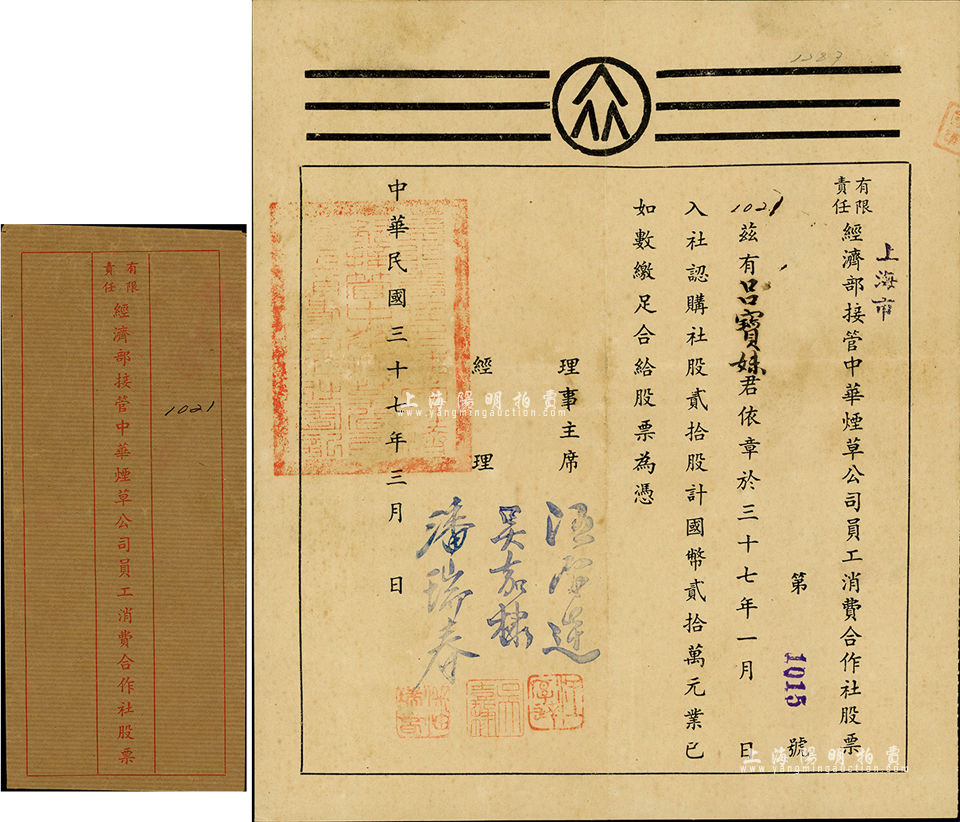 有限責任
經濟部接管中華煙草公司員工消費合作社股票
1021
1287
有限責任
上海市
經濟部接管中華煙草公司員工消費合作社股票
第1015號
1021
茲有呂寶妹君依章於三十七年一月 日
入社認購社股貳拾股計國幣貳拾萬元業已
如數繳足合給股票為憑
理事主席
經理
吳嘉棣
潘瑞春
中華民國三十七年三月 日
上海陽明拍賣
www.yangmingauction.com
上海陽明拍賣
www.yangmingauction.com